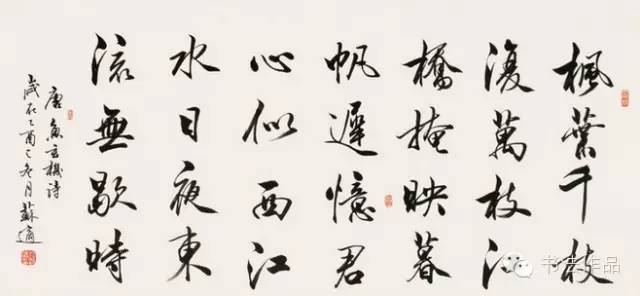 楓葉千枝
復萬枝江
橋掩映暮
帆遲憶君
心似西江
水日夜東
流無歇時
唐魚玄機詩
歲在乙酉之月蘇適
书法作品